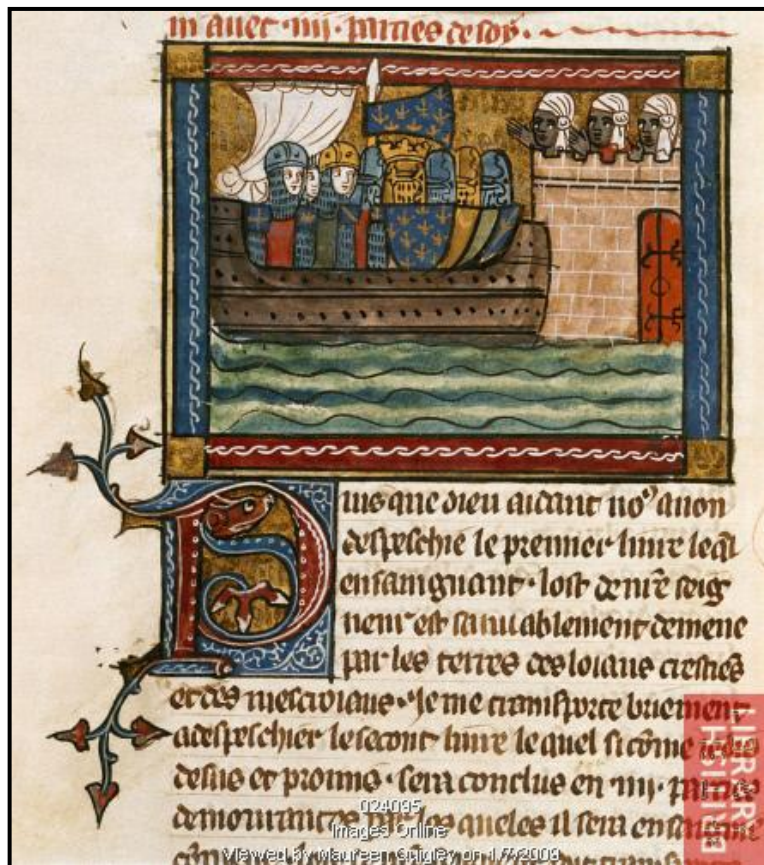 en avec .iiii. parties de soy.
Puis que dieu aidant nous avon
despeschie le premier livre leql
ensaingnant . lost de nre seig
neur est sauvablement demene
par les terres des loiaus crestiẽs
et des mescreaus . Je me transporte briement
a despeschier le secont livre le quel si cõme
desus est promis . sera conclus en .iiii.
demourantes par les queles il sera
BRITISH LIBRARY
024095
Images Online
Viewed by Maureen Quigley on 1/7/2009